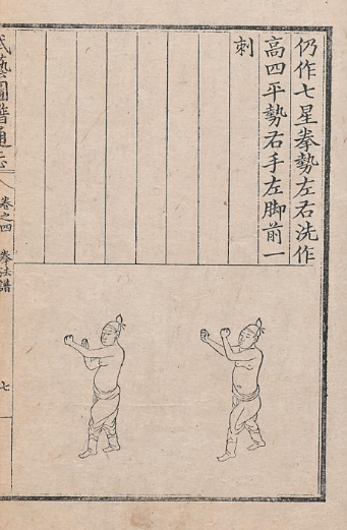 仍作七星拳勢左右洗作
高四平勢右手左脚前一
刺
武藝圖譜通志
卷之四
拳法譜
七